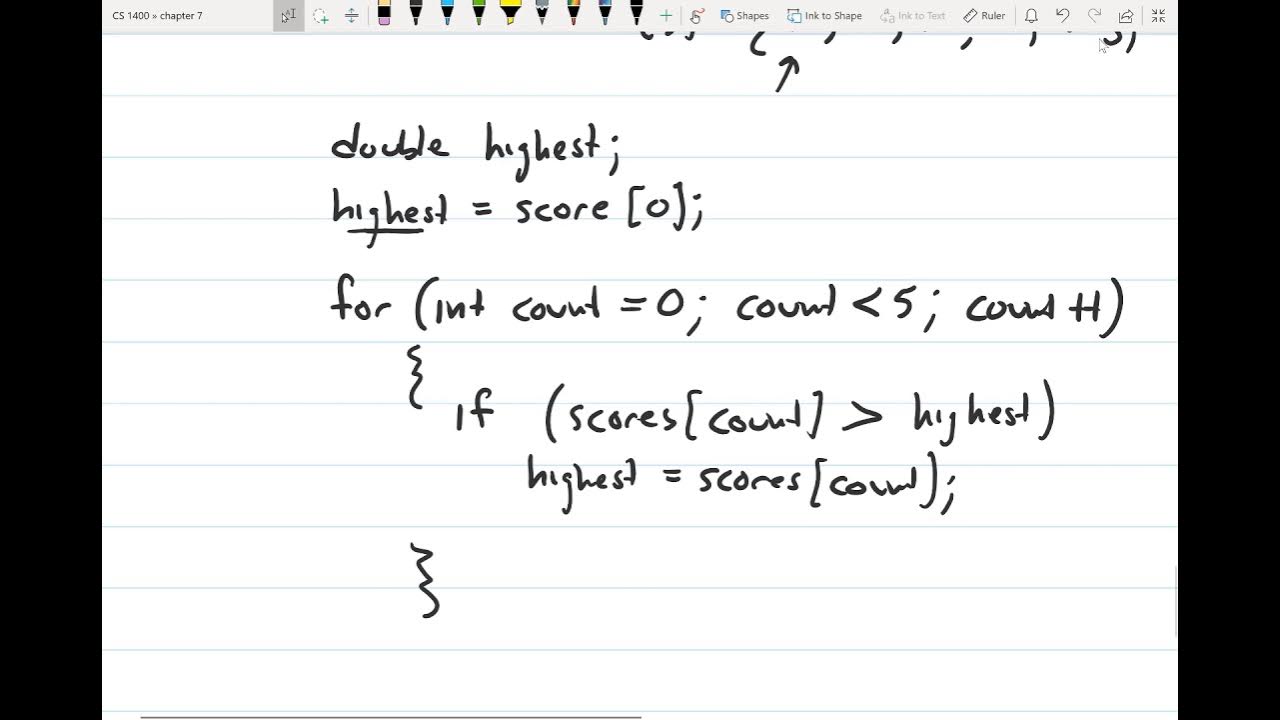 CS 1400 » chapter 7
Shapes Ink to Shape Ink to Text Ruler
double highest;
highest = score [0];
for (int count = 0; count < 5; count ++)
{
if (scores[count] > highest)
highest = scores[count];
}